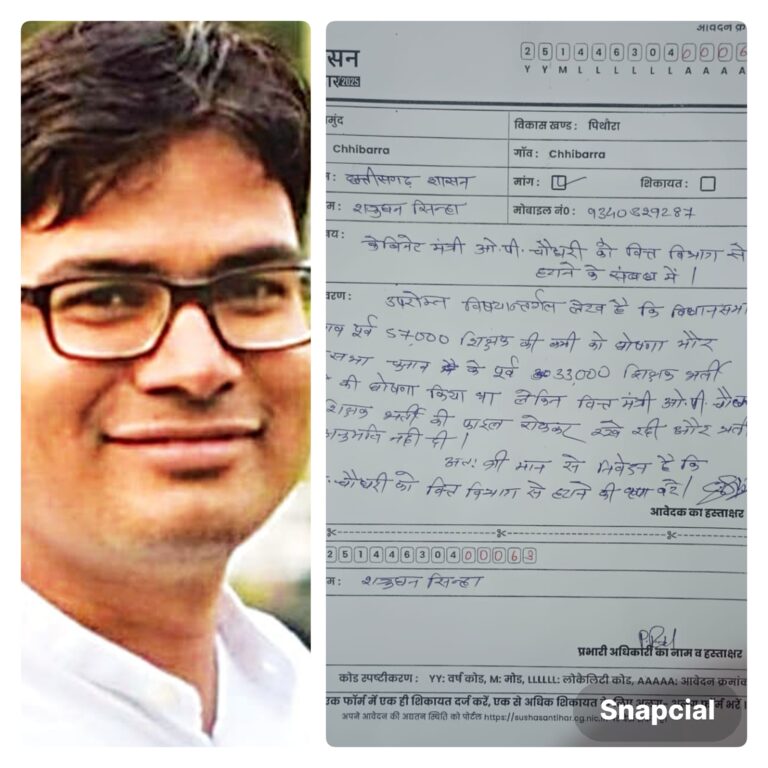 आवदन क्र
सन
2025
2 5 1 4 4 6 3 0 4 0 0 0 6
Y Y M L L L L L L A A A A
मुंद
विकास खण्ड : पिथौरा
Chhibarra
गाँव : Chhibarra
छत्तीसगढ़ शासन
मांग :
शिकायत :
म : शत्रुघन सिन्हा
मोबाइल नं० : 9340829287
षय :
केबिनेट मंत्री ओ.पी. चौधरी को वित्त विभाग से
हटाने के संबंध में ।
वरण : उपरोक्त विषयान्तर्गत लेख है कि विधानसभा
पूर्व 57,000 शिक्षक की कमी को घोषणा और
सभा चुनाव के पूर्व 33,000 शिक्षक भर्ती
की घोषणा किया था लेकिन वित्त मंत्री ओ.पी. चौध
शिक्षक भर्ती की फाइल रोककर रखे रही और भर्ती
अनुमति नहीं दी ।
अतः श्री मान से निवेदन है कि
चौधरी को वित्त विभाग से हटाने की कृपा करें ।
आवेदक का हस्ताक्षर
2 5 1 4 4 6 3 0 4 0 0 0 6 3
म : शत्रुघन सिन्हा
प्रभारी अधिकारी का नाम व हस्ताक्षर
कोड स्पष्टीकरण : YY: वर्ष कोड, M: मोड, LLLLLL: लोकेलिटी कोड, AAAAA: आवेदन क्रमांक
एक फॉर्म में एक ही शिकायत दर्ज करें, एक से अधिक शिकायत के लिए अलग- अलग फॉर्म भरें।
अपने आवेदन की अद्यतन स्थिति को पोर्टल https://sushasantihar.cg.nic.in
Snapcial